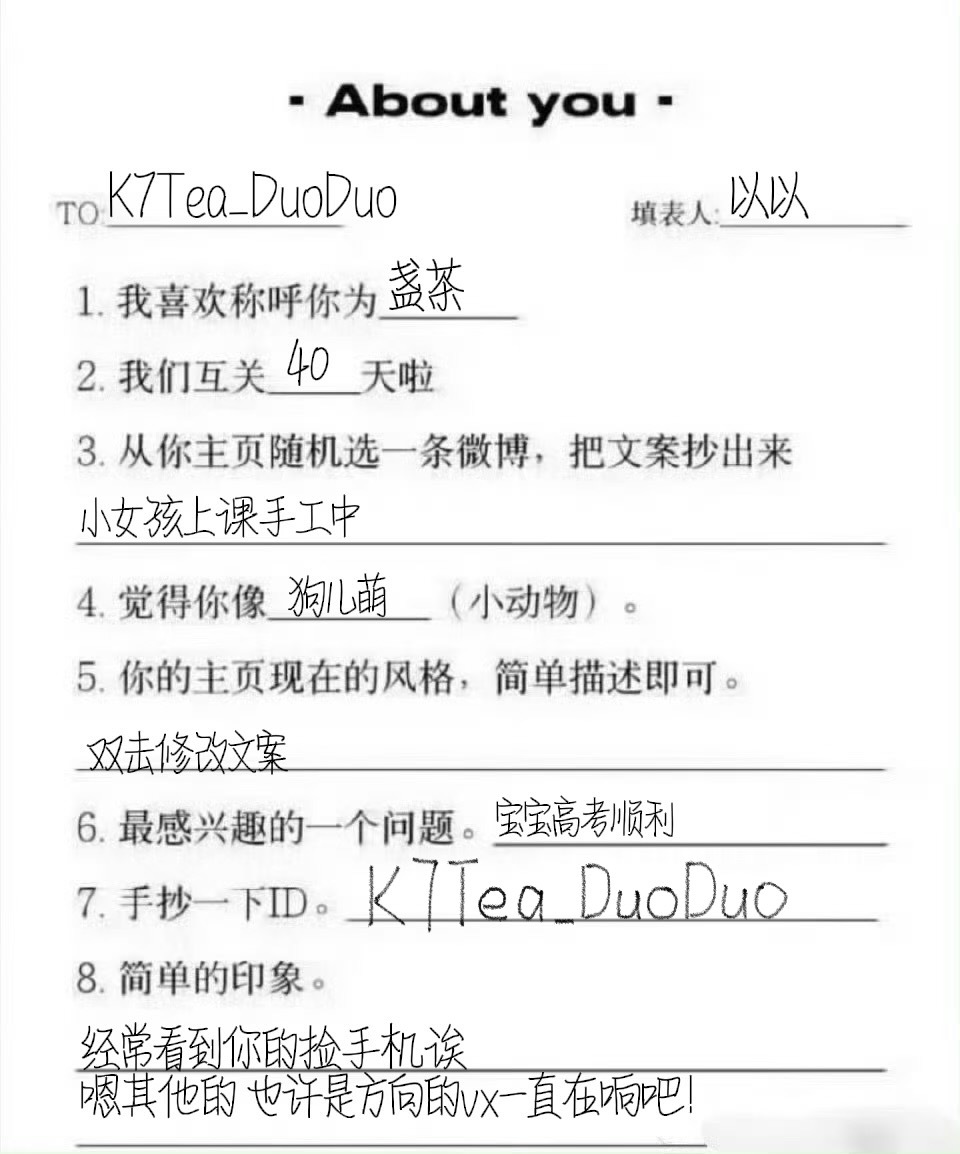 - About you -
TO: K7Tea_DuoDuo 填表人: 以以
1. 我喜欢称呼你为盏茶
2. 我们互关 40 天啦
3. 从你主页随机选一条微博，把文案抄出来
小女孩上课手工中
4. 觉得你像 狗儿萌 （小动物）。
5. 你的主页现在的风格，简单描述即可。
双击修改文案
6. 最感兴趣的一个问题。宝宝高考顺利
7. 手抄一下ID。 K7Tea_DuoDuo
8. 简单的印象。
经常看到你的捡手机诶
嗯其他的 也许是方向的vx一直在响吧！